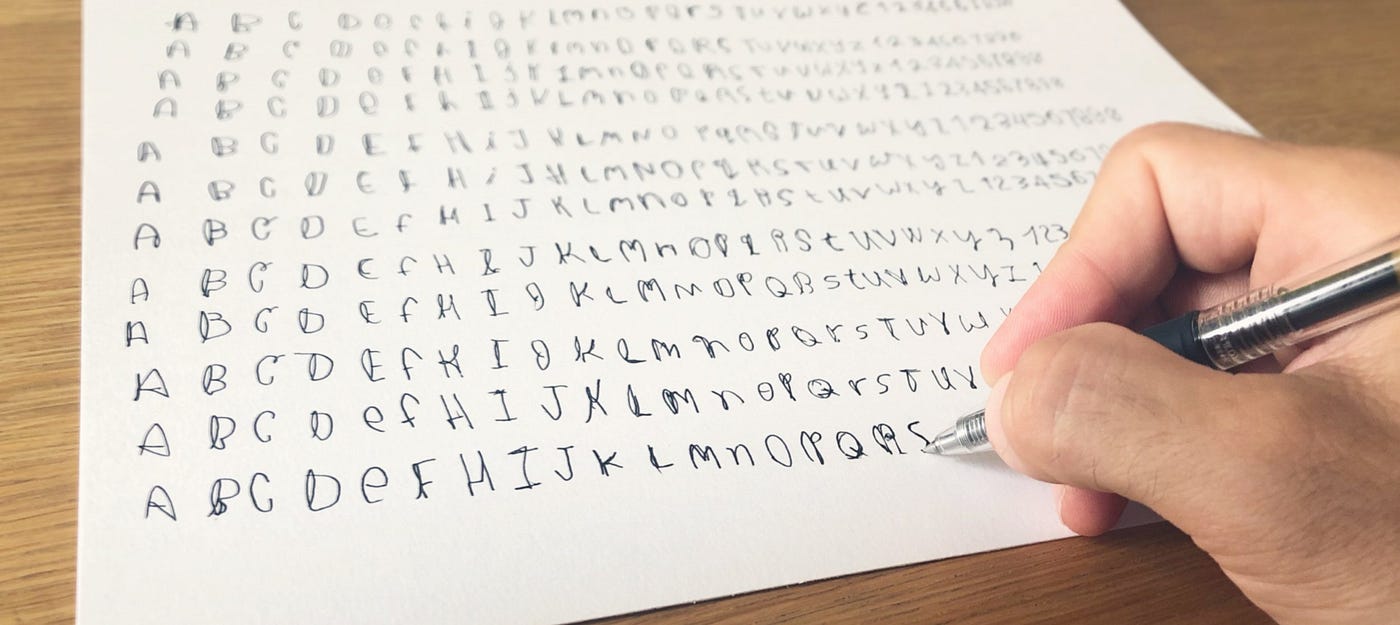 A B C D e f h i J K l m n O P q r s T u v w x y z 1 2 3 4 5 6 7 8 9 0
A B C D e f h I J K l m n O P Q R S T u v w x y z 1 2 3 4 5 6 7 8 9 0
A B C D e f H I J K I m n O P Q R S T u v w x y z 1 2 3 4 5 6 7 8 9 0
A B C D e f h I J K L m n o p q R S t u v w x y z 1 2 3 4 5 6 7 8 9 0
A B C D E f H i J K L M N O P q R S T u v w x y z 1 2 3 4 5 6 7 8 9 0
A B C D E f H i J K L M N O P q R S T u v w x y z 1 2 3 4 5 6 7
A B C D E f H I J K L m n o P q R S t u v w x y z 1 2 3 4 5 6 7
A B C D E f H I J K L M n O P q R S t u v w x y z 1 2 3
A B C D E f H I J K L M n O P Q R S t u v w x y z 1
A B C D E f H I J K L m n o p Q r s T u v w
A B C D e f H I J K L m n o p Q r s T u v
A B C D e F H I J K L M n O P Q R S